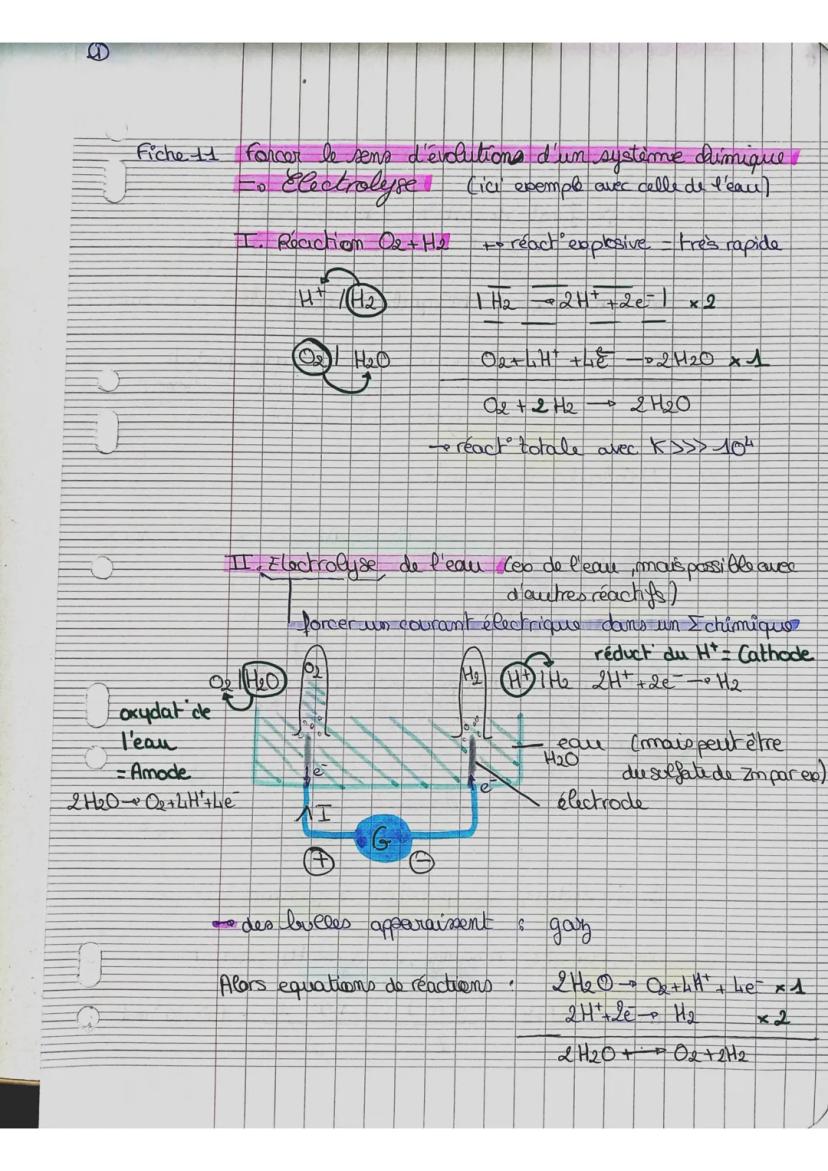 1
Fiche 11 Forcer le sens d'évolutions d'un système chimique
=> Électrolyse (ici exemple avec celle de l'eau)
I. Réaction O2+H2 ↔ réact° explosive = très rapide
H+/H2 | H2 → 2H+ + 2e- | x2
O2/H2O O2+4H+ +4e- → 2H2O x1
O2 + 2H2 → 2H2O
→ réact° totale avec K>>> 10^4
II. Electrolyse de l'eau (ex de l'eau, mais possible avec
d'autres réactifs)
forcer un courant électrique dans un Σ chimique
réduct° du H+ = Cathode
O2/H2O O2 H2 H+/H2 2H+ + 2e- → H2
oxydat° de
l'eau
= Anode
2H2O → O2+4H+ +4e-
eau (mais peut être
H2O du sulfate de Zn par ex)
e- e- électrode
I
G
+ -
→ des bulles apparaissent : gaz
Alors equations de réactions : 2H2O → O2+4H+ + 4e- x1
2H+ + 2e- → H2 x2
2H2O + → O2+2H2